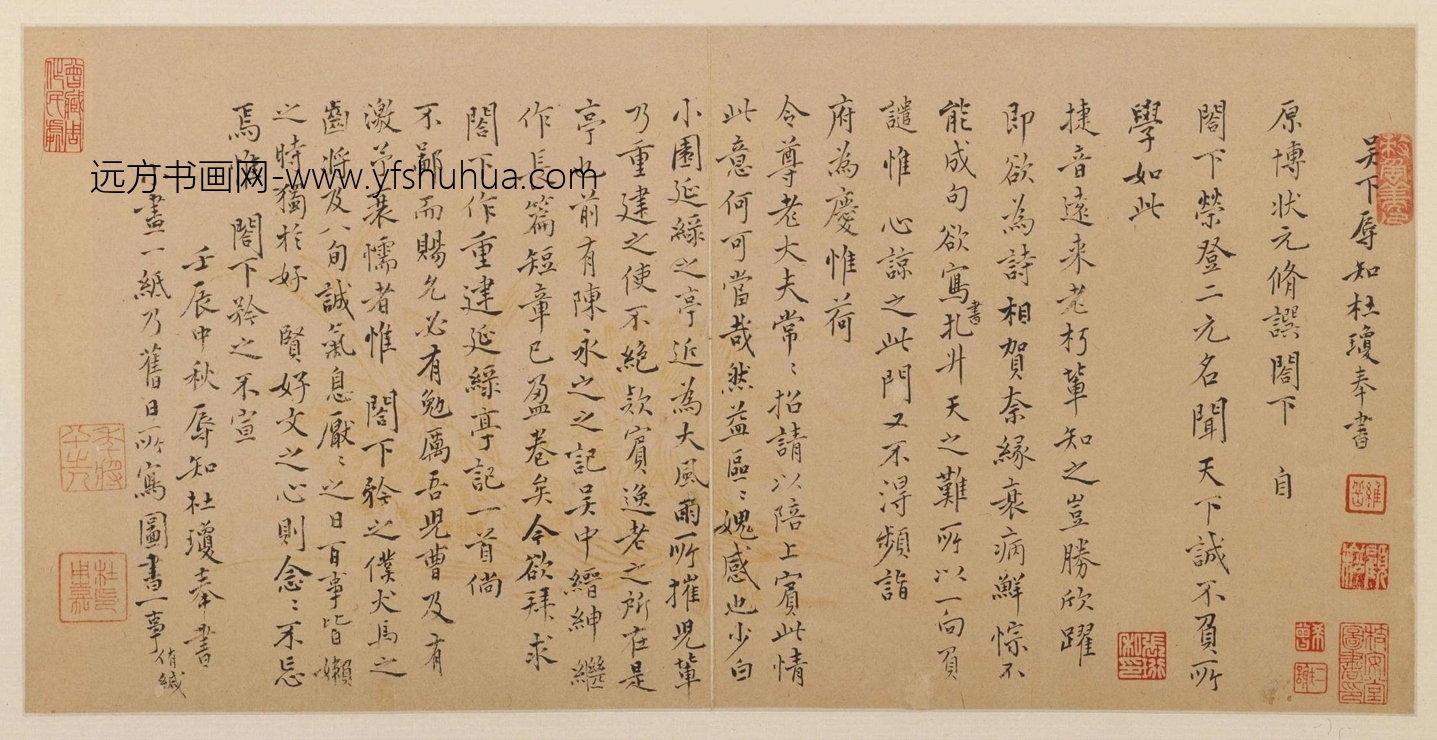 吴下辱知杜瓊奉書
原博狀元脩譔閤下　自
閤下榮登二元名聞天下誠不負所
學如此
捷音遠来老朽輩知之豈勝欣躍
即欲為詩相賀柰緣衰病鮮悰不
能成句欲寫書扎升天之難所以一向負
譴惟心諒之此門又不淂頻詣
府為慶惟荷
令尊老大夫常〻招請以陪上賓此情
此意何可當㢤然益區〻媿感也少白
小園延緑之亭近為大風雨所摧児輩
乃重建之使不絶欵賓逸老之所在是
亭也前有陳永之之記吴中縉紳繼
作長篇短章已盈卷矣今欲拜求
閤下作重建延緑亭記一首倘
不鄙而賜允必有勉厲吾児曹及有
激夫衰懦者惟　閤下矜之僕犬馬之
齒将及八旬誠氣息厭〻之日百事皆嬾
之時獨於好　賢好文之心則念〻不忘
焉　閤下矜之不宣
壬辰中秋辱知杜瓊奉書
畫一紙乃舊日所寫圖書一事侑緘
远方书画网-www.yfshuhua.com